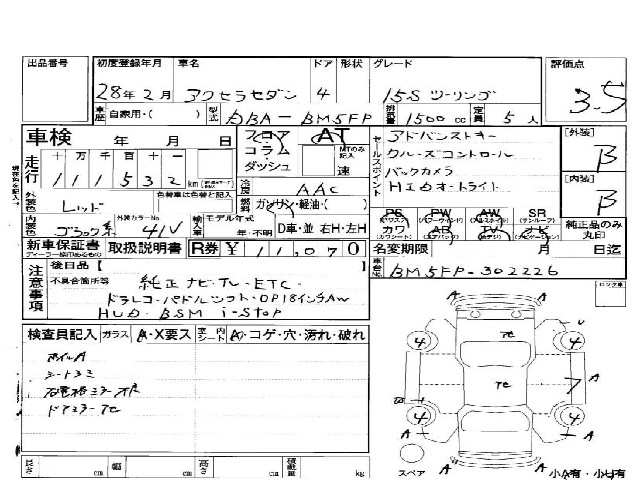 出品番号 初度登録年月 車名 ドア 形状 グレード 評価点
28年2月 アクセラセダン 4 15Sツーリング 3.5
車歴 自家用・( ) 型式 DBA-BM5FP 排気量 1500cc 定員 5人
車検 年 月 日 フロア AT
コラム MTのみ記入
ダッシュ 速
走行 十 万 千 百 十 一
111532 km
冷房 AAC
燃料 ガソリン・軽油・( )
セールスポイント アドバンストキー
クルーズコントロール
バックカメラ
HIDオートライト
[外装] B
[内装] B
外装色 レッド 色替車は色替と記入
内装色 ブラック系 外装カラーNo 41V
輸入車 モデル年式 年・不明 D車・並 右H・左H
PS PW AW SR (サンルーフ)
カワ AB TV ナビ
純正品のみ丸印
新車保証書 取扱説明書 R券 ¥11,070 名変期限 月 日迄
車台No. BM5FP-302226
注意事項 後日品【
不具合箇所等 純正ナビ・TV・ETC・
ドラレコ・パドルシフト・OP18インチAW
HUD・BSM i-stop
ロック車
検査員記入 ガラス A・X要ス 室内シート A・コゲ・穴・汚れ・破れ
ホイルA
シートスミ
ドアミラーTC
長さ cm 幅 cm 高さ cm 積載量 kg
スペア
小A有・小U有